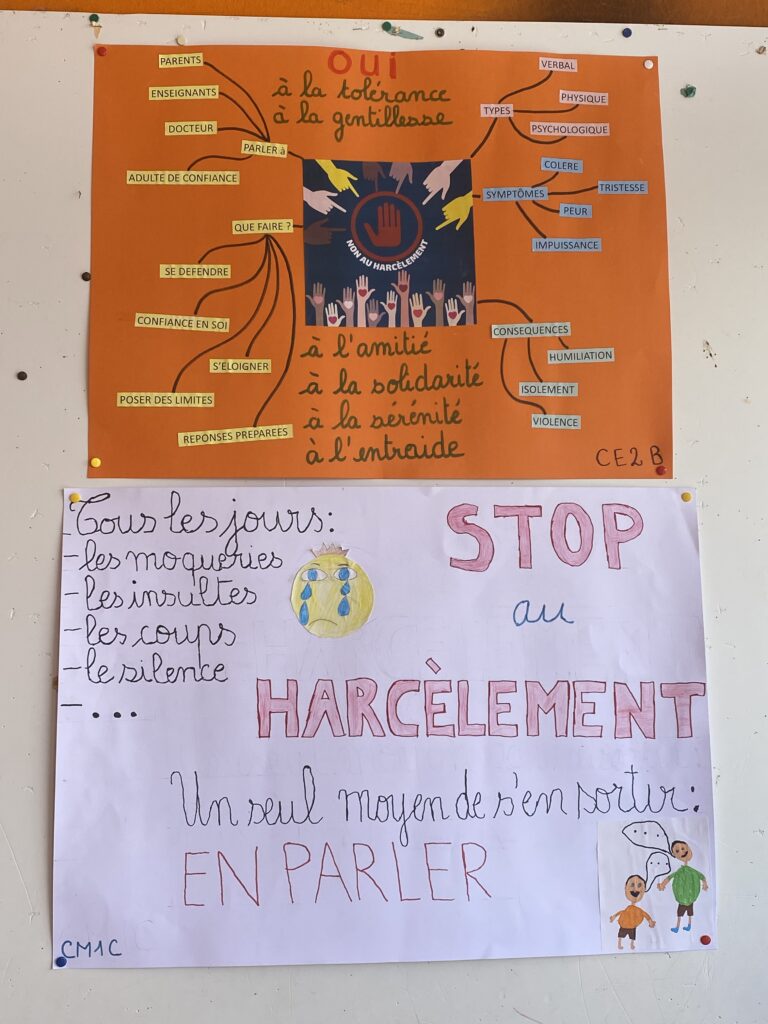 oui
à la tolérance
à la gentillesse
PARENTS
ENSEIGNANTS
DOCTEUR
PARLER à
ADULTE DE CONFIANCE
QUE FAIRE ?
SE DEFENDRE
CONFIANCE EN SOI
S'ELOIGNER
POSER DES LIMITES
REPONSES PREPAREES
NON AU HARCÈLEMENT
VERBAL
TYPES
PHYSIQUE
PSYCHOLOGIQUE
COLERE
SYMPTÔMES
TRISTESSE
PEUR
IMPUISSANCE
CONSEQUENCES
HUMILIATION
ISOLEMENT
VIOLENCE
à l'amitié
à la solidarité
à la sérénité
à l'entraide
CE2 B
Tous les jours:
- les moqueries
- les insultes
- les coups
- le silence
- ...
STOP
au
HARCÈLEMENT
Un seul moyen de s'en sortir:
EN PARLER
...
...
CM1C